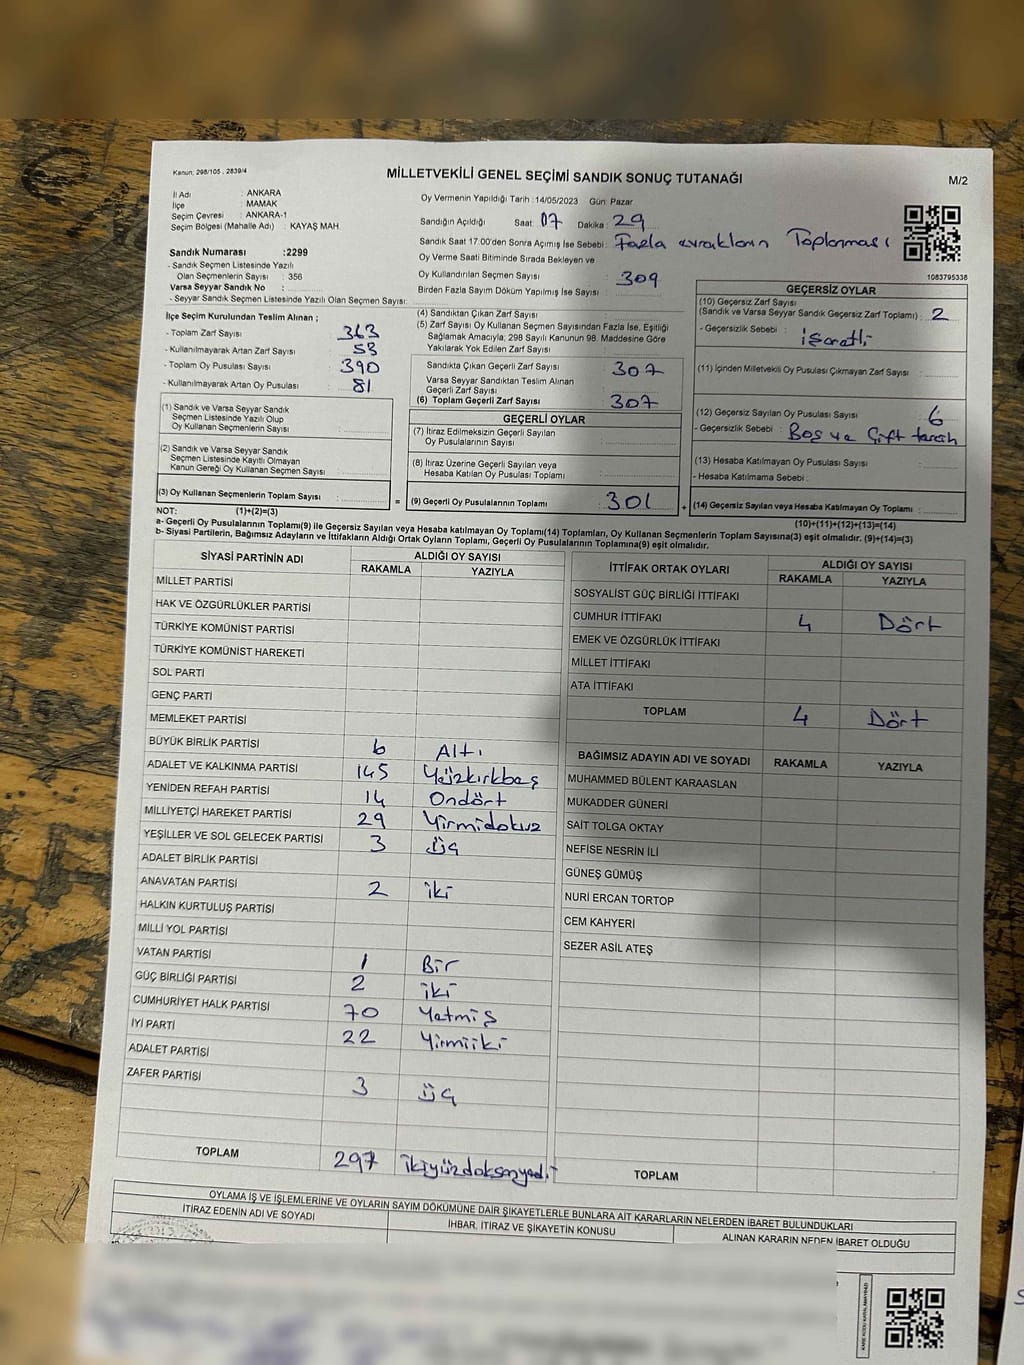 Kanun; 298/105 , 2839/4
MİLLETVEKİLİ GENEL SEÇİMİ SANDIK SONUÇ TUTANAĞI
M/2
İl Adı : ANKARA
İlçe : MAMAK
Seçim Çevresi : ANKARA-1
Seçim Bölgesi (Mahalle Adı) : KAYAŞ MAH.
Sandık Numarası :2299
- Sandık Seçmen Listesinde Yazılı
Olan Seçmenlerin Sayısı : 356
Varsa Seyyar Sandık No :
- Seyyar Sandık Seçmen Listesinde Yazılı Olan Seçmen Sayısı:
Oy Vermenin Yapıldığı Tarih :14/05/2023 Gün: Pazar
Sandığın Açıldığı Saat: 07 Dakika : 29
Sandık Saat 17.00'den Sonra Açımış İse Sebebi: Fazla evrakların Toplanması
Oy Verme Saati Bitiminde Sırada Bekleyen ve
Oy Kullandırılan Seçmen Sayısı : 309
Birden Fazla Sayım Döküm Yapılmış İse Sayısı :
1083795336
İlçe Seçim Kurulundan Teslim Alınan ;
- Toplam Zarf Sayısı : 363
- Kullanılmayarak Artan Zarf Sayısı : 53
- Toplam Oy Pusulası Sayısı : 390
- Kullanılmayarak Artan Oy Pusulası : 81
(1) Sandık ve Varsa Seyyar Sandık
Seçmen Listesinde Yazılı Olup
Oy Kullanan Seçmenlerin Sayısı :
(2) Sandık ve Varsa Seyyar Sandık
Seçmen Listesinde Kayıtlı Olmayan
Kanun Gereği Oy Kullanan Seçmen Sayısı :
(3) Oy Kullanan Seçmenlerin Toplam Sayısı :
(1)+(2)=(3)
(4) Sandıktan Çıkan Zarf Sayısı :
(5) Zarf Sayısı Oy Kullanan Seçmen Sayısından Fazla İse, Eşitliği
Sağlamak Amacıyla; 298 Sayılı Kanunun 98. Maddesine Göre
Yakılarak Yok Edilen Zarf Sayısı :
Sandıkta Çıkan Geçerli Zarf Sayısı : 307
Varsa Seyyar Sandıktan Teslim Alınan
Geçerli Zarf Sayısı :
(6) Toplam Geçerli Zarf Sayısı : 307
GEÇERLİ OYLAR
(7) İtiraz Edilmeksizin Geçerli Sayılan
Oy Pusulalarının Sayısı :
(8) İtiraz Üzerine Geçerli Sayılan veya
Hesaba Katılan Oy Pusulası Toplamı :
= (9) Geçerli Oy Pusulalarının Toplamı : 301 +
GEÇERSİZ OYLAR
(10) Geçersiz Zarf Sayısı
(Sandık ve Varsa Seyyar Sandık Geçersiz Zarf Toplamı) : 2
- Geçersizlik Sebebi : işaretli
(11) İçinden Milletvekili Oy Pusulası Çıkmayan Zarf Sayısı :
(12) Geçersiz Sayılan Oy Pusulası Sayısı : 6
- Geçersizlik Sebebi : Boş ve Çift tercih
(13) Hesaba Katılmayan Oy Pusulası Sayısı :
- Hesaba Katılmama Sebebi :
(14) Geçersiz Sayılan veya Hesaba Katılmayan Oy Toplamı :
(10)+(11)+(12)+(13)=(14)
NOT:
a- Geçerli Oy Pusulalarının Toplamı(9) ile Geçersiz Sayılan veya Hesaba katılmayan Oy Toplamı(14) Toplamları, Oy Kullanan Seçmenlerin Toplam Sayısına(3) eşit olmalıdır. (9)+(14)=(3)
b- Siyasi Partilerin, Bağımsız Adayların ve İttifakların Aldığı Ortak Oyların Toplamı, Geçerli Oy Pusulalarının Toplamına(9) eşit olmalıdır.
SİYASİ PARTİNİN ADI ALDIĞI OY SAYISI
RAKAMLA YAZIYLA
MİLLET PARTİSİ
HAK VE ÖZGÜRLÜKLER PARTİSİ
TÜRKİYE KOMÜNİST PARTİSİ
TÜRKİYE KOMÜNİST HAREKETİ
SOL PARTİ
GENÇ PARTİ
MEMLEKET PARTİSİ
BÜYÜK BİRLİK PARTİSİ 6 Altı
ADALET VE KALKINMA PARTİSİ 145 Yüzkırkbeş
YENİDEN REFAH PARTİSİ 14 Ondört
MİLLİYETÇİ HAREKET PARTİSİ 29 Yirmidokuz
YEŞİLLER VE SOL GELECEK PARTİSİ 3 üç
ADALET BİRLİK PARTİSİ
ANAVATAN PARTİSİ 2 iki
HALKIN KURTULUŞ PARTİSİ
MİLLİ YOL PARTİSİ
VATAN PARTİSİ 1 Bir
GÜÇ BİRLİĞİ PARTİSİ 2 iki
CUMHURİYET HALK PARTİSİ 70 Yetmiş
İYİ PARTİ 22 Yirmiiki
ADALET PARTİSİ
ZAFER PARTİSİ 3 üç
TOPLAM 297 ikiyüzdoksanyedi
İTTİFAK ORTAK OYLARI ALDIĞI OY SAYISI
RAKAMLA YAZIYLA
SOSYALİST GÜÇ BİRLİĞİ İTTİFAKI
CUMHUR İTTİFAKI 4 Dört
EMEK VE ÖZGÜRLÜK İTTİFAKI
MİLLET İTTİFAKI
ATA İTTİFAKI
TOPLAM 4 Dört
BAĞIMSIZ ADAYIN ADI VE SOYADI RAKAMLA YAZIYLA
MUHAMMED BÜLENT KARAASLAN
MUKADDER GÜNERİ
SAİT TOLGA OKTAY
NEFİSE NESRİN İLİ
GÜNEŞ GÜMÜŞ
NURİ ERCAN TORTOP
CEM KAHYERİ
SEZER ASİL ATEŞ
TOPLAM
OYLAMA İŞ VE İŞLEMLERİNE VE OYLARIN SAYIM DÖKÜMÜNE DAİR ŞİKAYETLERLE BUNLARA AİT KARARLARIN NELERDEN İBARET BULUNDUKLARI
İTİRAZ EDENİN ADI VE SOYADI İHBAR, İTİRAZ VE ŞİKAYETİN KONUSU ALINAN KARARIN NEDEN İBARET OLDUĞU
KARE KODU KARALAMAYINIZ!